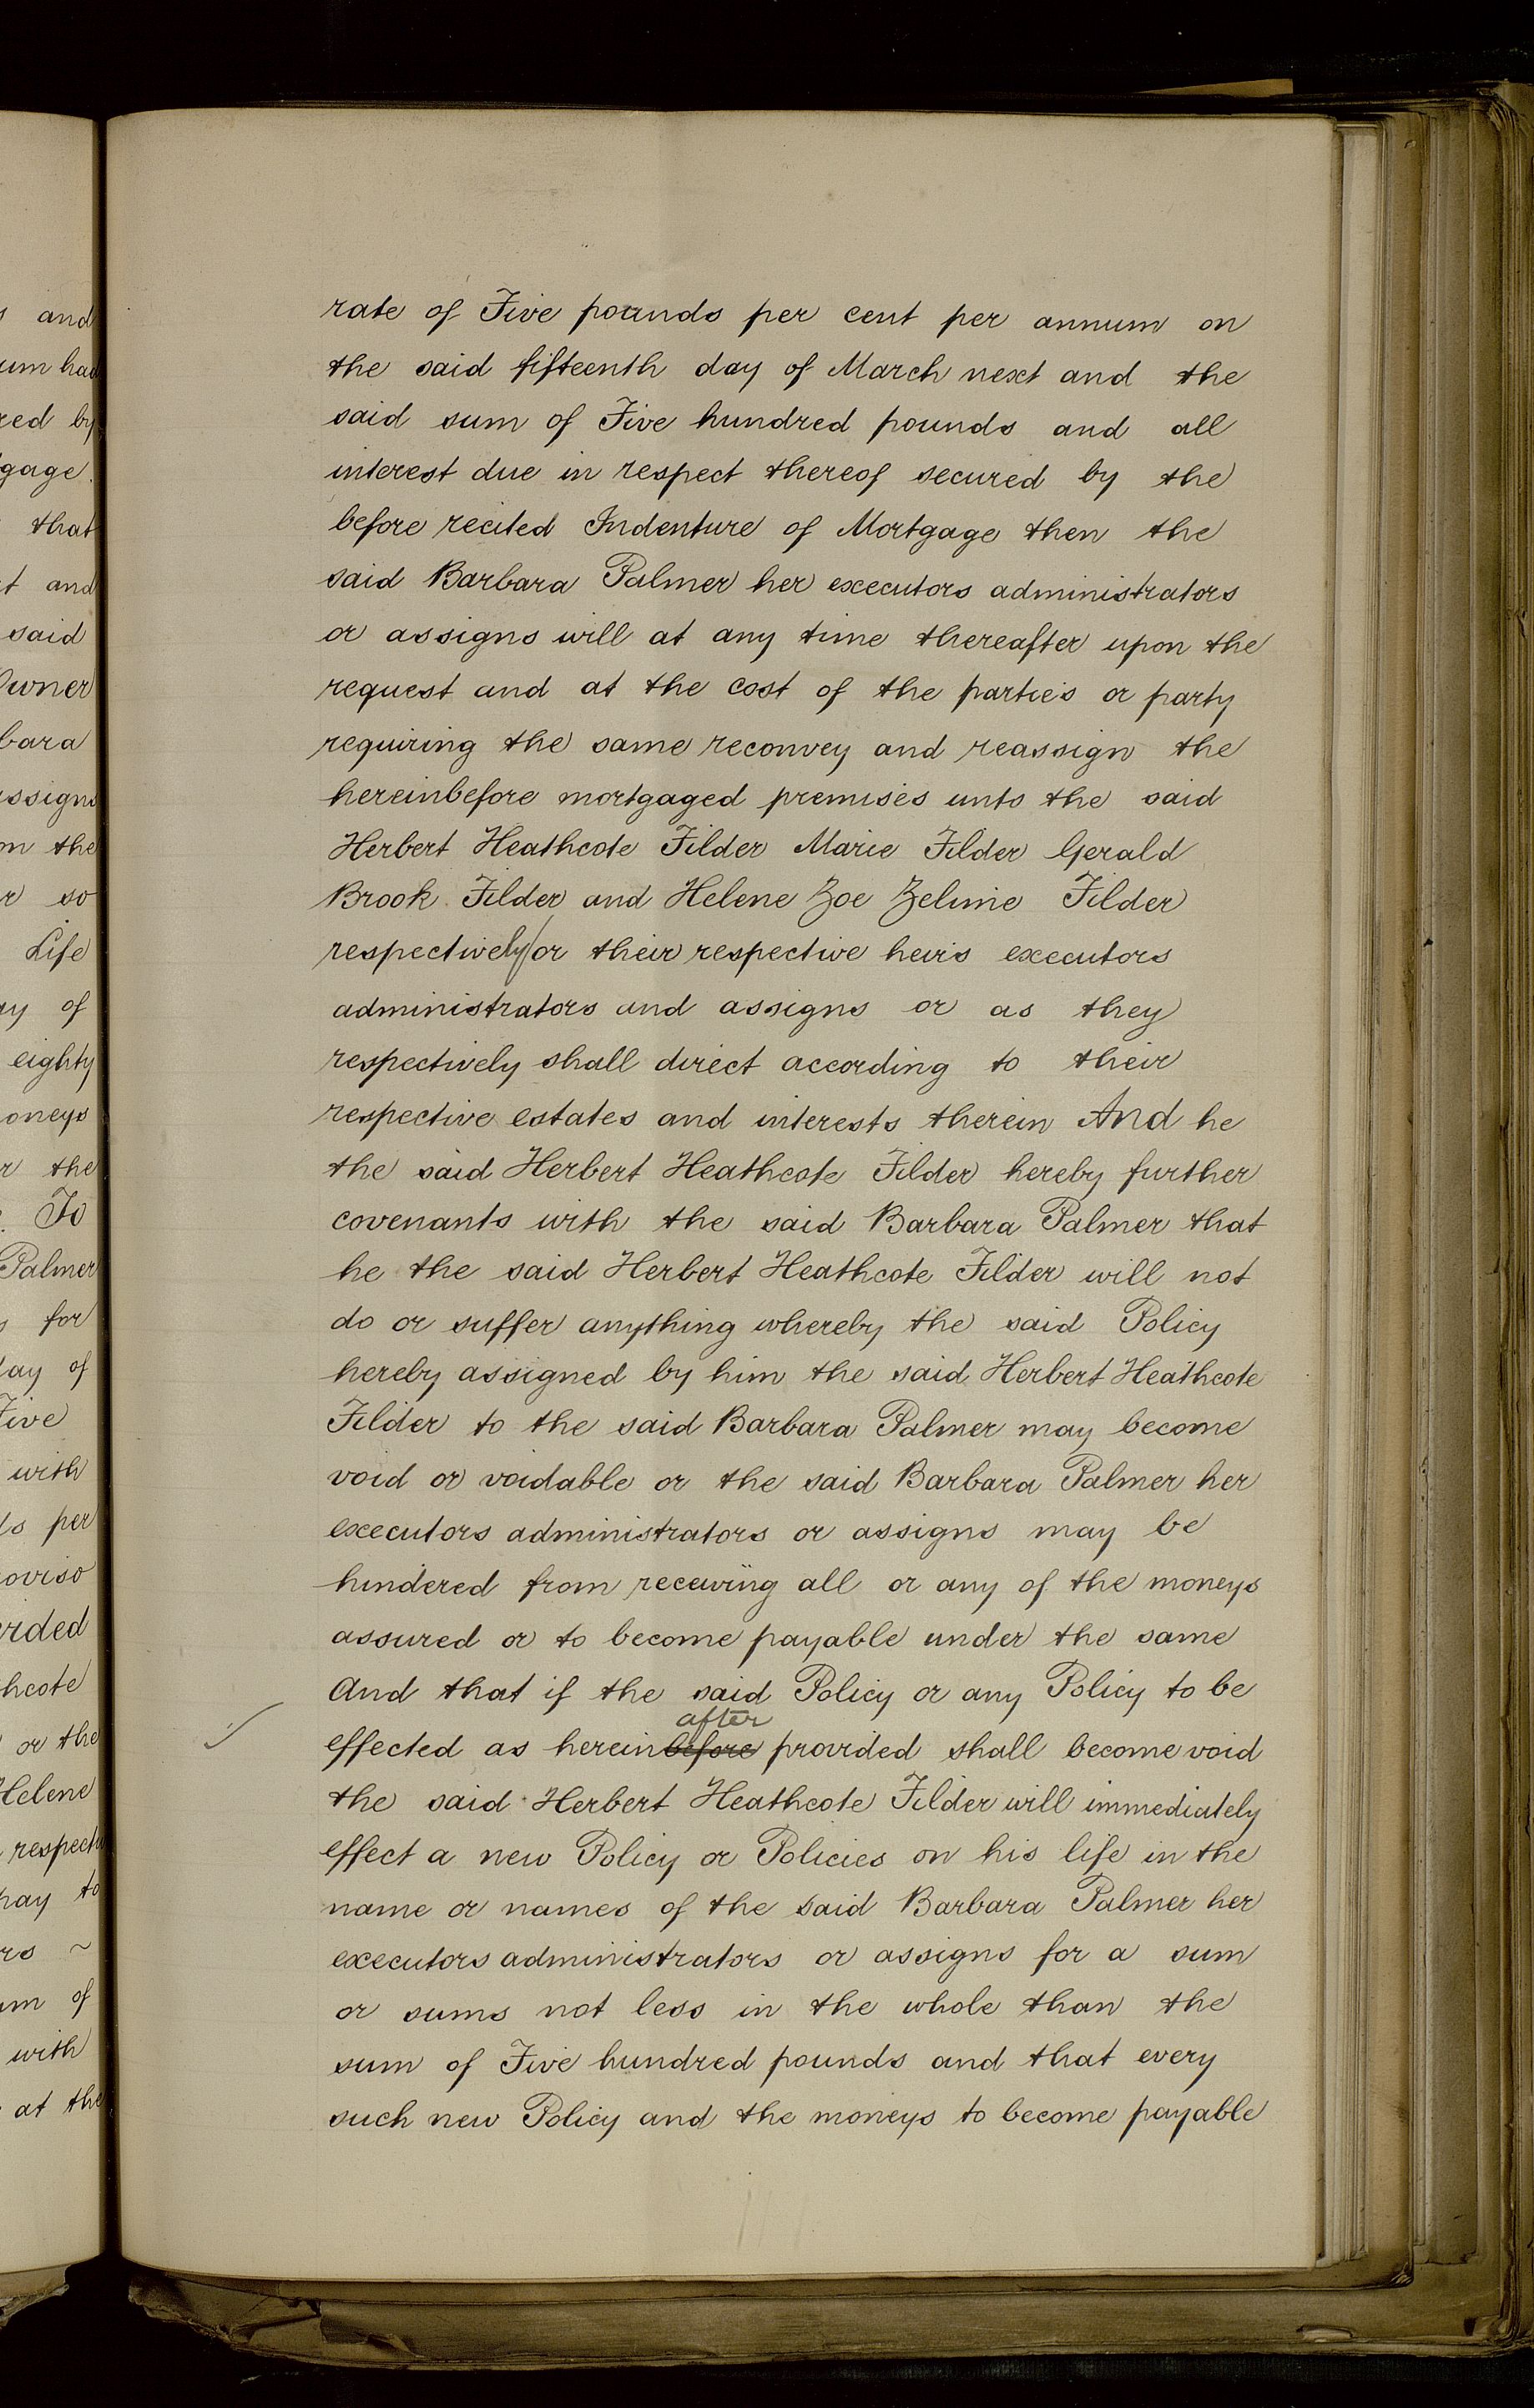 s and
um had
red by
gage.
that
t and
said
Owner
bara
assigns
m the
r so
Life
ay of
eighty
oneys
r the
To
Palmer
s for
day of
Five
with
ds per
oviso
vided
hcote
or the
Helene
respecti
pay to
rs ~
um of
with
at the
rate of Five pounds per cent per annum on
the said fifteenth day of March next and the
said sum of Five hundred pounds and all
interest due in respect thereof secured by the
before recited Indenture of Mortgage then the
said Barbara Palmer her executors administrators
or assigns will at any time thereafter upon the
request and at the cost of the parties or party
requiring the same reconvey and reassign the
hereinbefore mortgaged premises unto the said
Herbert Heathcote Filder Marie Filder Gerald
Brook Filder and Helene Zoe Zelmie Filder
respectively/or their respective heirs executors
administrators and assigns or as they
respectively shall direct according to their
respective estates and interests therein And he
the said Herbert Heathcote Filder hereby further
covenants with the said Barbara Palmer that
he the said Herbert Heathcote Filder will not
do or suffer anything whereby the said Policy
hereby assigned by him the said Herbert Heathcote
Filder to the said Barbara Palmer may become
void or voidable or the said Barbara Palmer her
executors administrators or assigns may be
hindered from receiving all or any of the moneys
assured or to become payable under the same
And that if the said Policy or any Policy to be
after
effected as hereinbefore provided shall become void
the said Herbert Heathcote Filder will immediately
effect a new Policy or Policies on his life in the
name or names of the said Barbara Palmer her
executors administrators or assigns for a sum
or sums not less in the whole than the
sum of Five hundred pounds and that every
such new Policy and the moneys to become payable